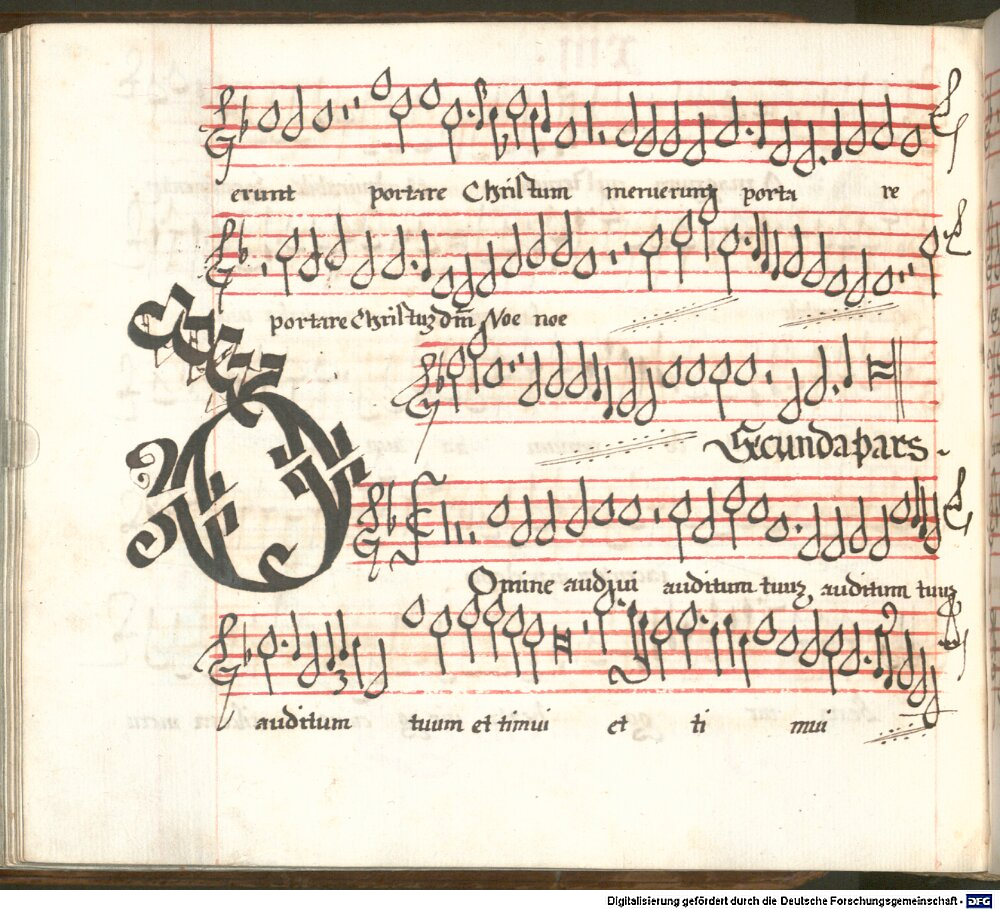 erunt portare Christum meruerunt porta re
portare Christuz dm̄ Noe noe
Secunda pars.
Domine audivi auditum tuuz auditum tuuz
auditum tuum et timui et ti mui
Digitalisierung gefördert durch die Deutsche Forschungsgemeinschaft - DFG